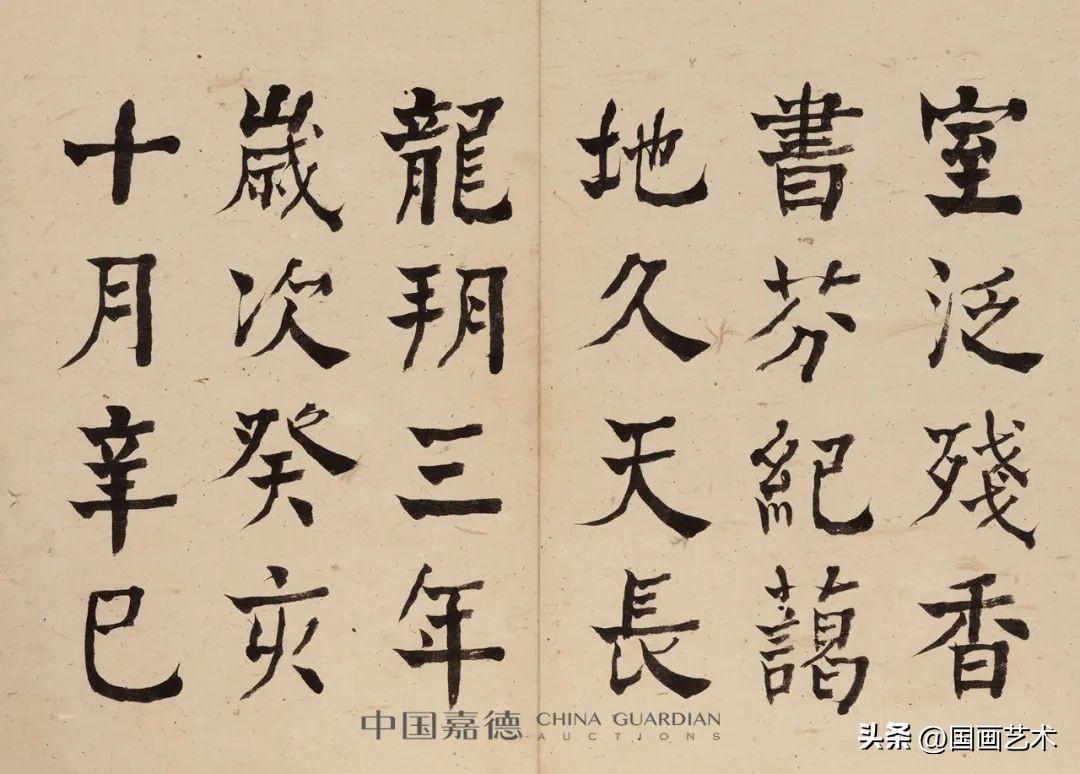 室泛殘香
書芬紀藹
地久天長
龍朔三年
歲次癸亥
十月辛巳
中国嘉德 CHINA GUARDIAN
AUCTIONS
头条 @国画艺术